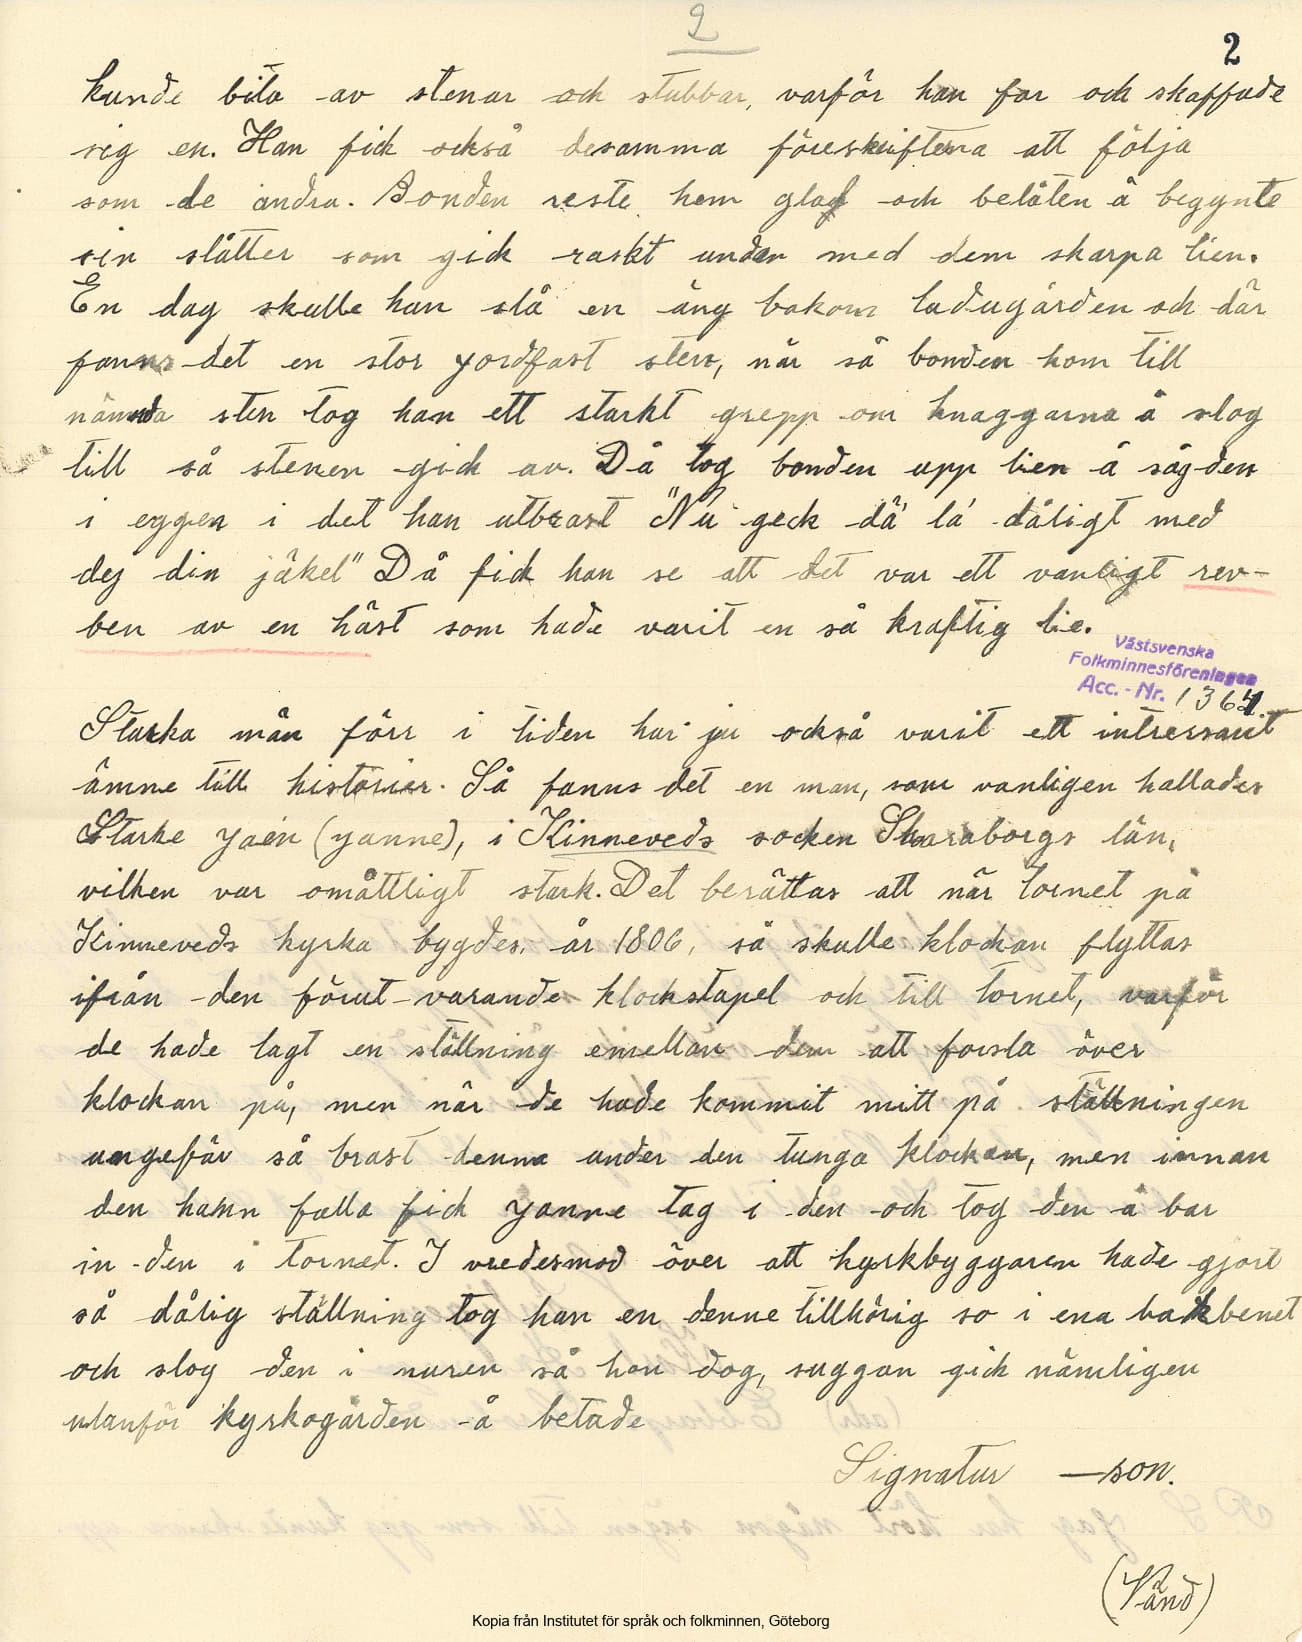 2
2
kunde bita av stenar och stubbar, varför han for och skaffade
sig en. Han fick också desamma föreskrifterna att följa
som de andra. Bonden reste hem glad och belåten å begynte
sin slåtter som gick raskt undan med dem skarpa lien.
En dag skulle han slå en äng bakom ladugården och där
fanns det en stor yordfast sten, när så bonden kom till
nämnda sten tog han ett starkt grepp om knaggarna å slog
till så stenen gick av. Då tog bonden upp lien å såg den
i eggen i det han utbrast "Nu geck dä' la' dåligt med
dej din jäkel" Då fick han se att det var ett vanligt rev-
ben av en häst som hade varit en så kraftig lie.
Västsvenska
Folkminnesföreningen
Acc. - Nr. 1364
Starka män förr i tiden har ju också varit ett intressant
ämne till historier. Så fanns det en man, som vanligen kallades
Starke Yaén (Yanne), i Kinneveds socken Skaraborgs län,
vilken var omåttligt stark. Det berättas att när tornet på
Kinneveds kyrka bygdes, år 1806, så skulle klockan flyttas
ifrån den förut-varande klockstapel och till tornet, varför
de hade lagt en ställning emellan dem att forsla över
klockan på, men när de hade kommit mitt på ställningen
ungefär så brast denna under den tunga klockan, men innan
den hann falla fick Yanne tag i den och tog den å bar
in den i tornet. I vredesmod över att kyrkbyggaren hade gjort
så dålig ställning tog han en denne tillhörig so i ena bakbenet
och slog den i muren så hon dog, suggan gick nämligen
utanför kyrkogården å betade
Signatur —son.
(Vänd)
Kopia från Institutet för språk och folkminnen, Göteborg